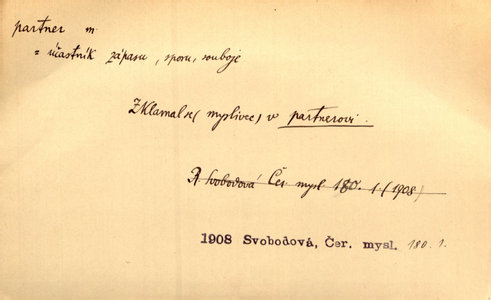 partner m
= účastník zápasu, sporu, souboje
Zklamal se (myslivec) v partnerovi.
R Svobodová Čer mysl 180. 1. (1908)
1908 Svobodová, Čer. mysl. 180. 1.